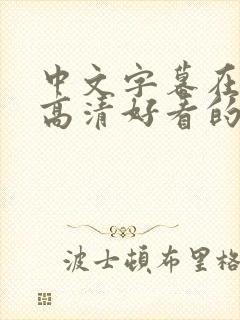 中文字幕在
高清好看的
波士顿布里格